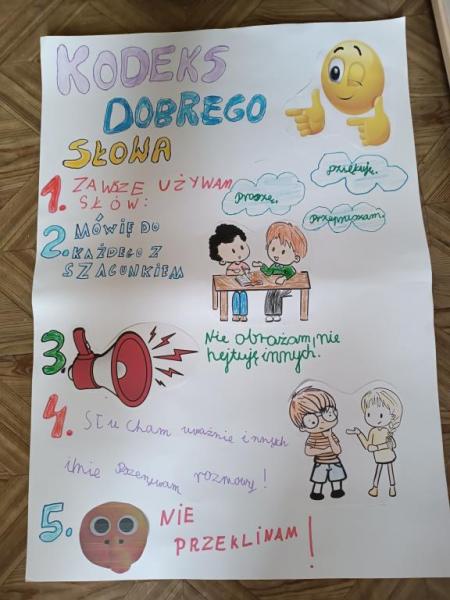 KODEKS
DOBREGO
SŁOWA
1. ZAWSZE UŻYWAM
SŁÓW:
Proszę.
Dziękuję.
Przepraszam.
2. MÓWIĘ DO
KAŻDEGO Z
SZACUNKIEM
3. Nie obrażam, nie
hejtuję innych.
4. Słucham uważnie innych
i nie rozmowy!
5. NIE
PRZEKLINAM!